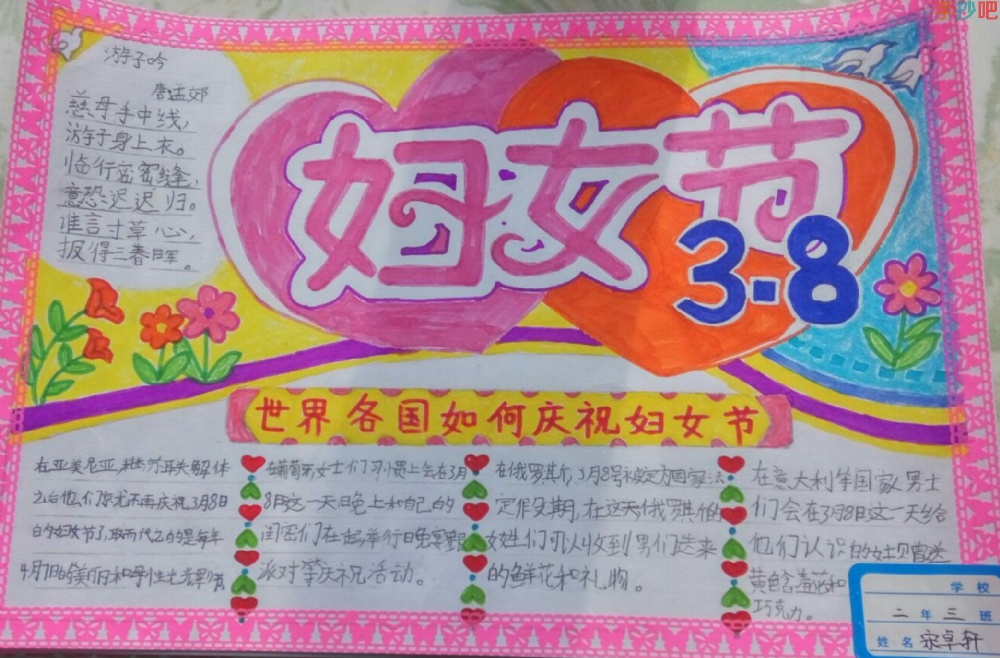 抄吧
游子吟
唐孟郊
慈母手中线，
游子身上衣。
临行密密缝，
意恐迟迟归。
谁言寸草心，
报得三春晖。
妇女节
3-8
世界各国如何庆祝妇女节
在亚美尼亚,苏联解体
他们 不再庆祝3月8日
的妇女节了,取而代之的是每年
4月7日的
在葡萄牙女士们习惯上会在3月
8日这一天晚上和自己的
闺密们在起举行晚宴跟
派对等庆祝活动。
在俄罗斯,3月8号被定为国家法
定假期,在这天俄罗斯的
女姓们可以收到男们送来
的鲜花和礼物。
在意大利等国家男士
们会在3月8日这一天给
他们认识的女士贝曾送
黄含羞花和
巧克力。
学校
二年三班
姓名宋卓轩